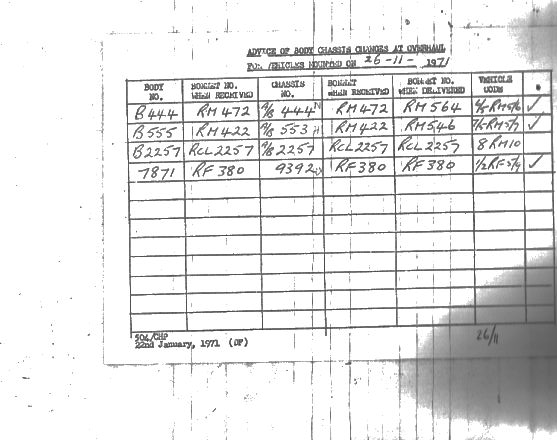 ADVICE OF BODY CHASSIS CHANGES AT OVERHAUL
FOR VEHICLES MOUNTED ON 26-11- 1971
BODY NO. BONNET NO. WHEN RECEIVED CHASSIS NO. BONNET WHEN RECEIVED BONNET NO. WHEN DELIVERED VEHICLE CODE *
B444 RM472 A/B 444 RM472 RM564 RM5/6 ✓
B555 RM422 A/B 553 RM422 RM546 RM5/7 ✓
B2257 RCL2257 A/B 2257 RCL2257 RCL2257 8RM10
7871 RF380 9392 RF380 RF380 1/2RF5/9 ✓
504/CHP
22nd January, 1971 (OF)
26/11